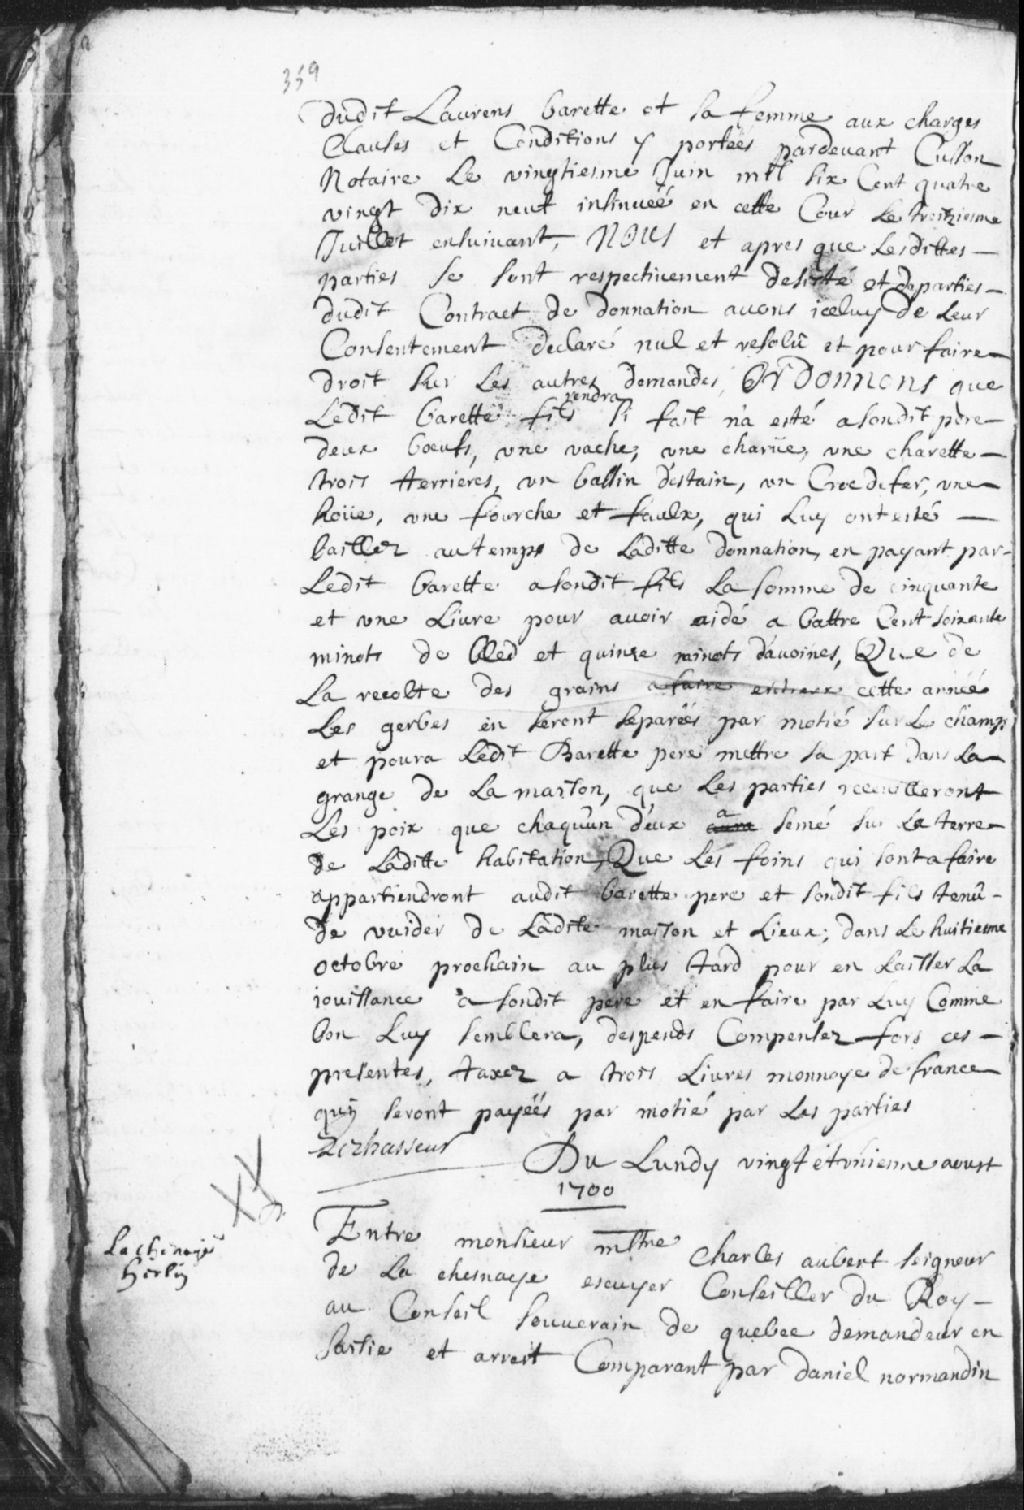 359
dudit Laurens barette et sa femme aux charges
Clauses et Conditions y portées pardevant Cusson
Notaire Le vingtiesme Juin mil six Cent quatre
vingt dix neuf insinuée en cette Cour le treiziesme
Juillet ensuivant, NOUS et apres que Lesdittes
parties se sont respectivement desisté et departies
dudit Contract de donnation avons iceluy De Leur
Consentement declaré nul et resolu et pour faire
droit sur Les autres demandes, ORDONNONS que
Ledit barette fils rendra si fait n'a esté a sondit pere
deux boeufs, une vache, une charüe, une charette
trois terrieres, un bassin destain, un Croc de fer, une
hoüe, une fourche et faulx, qui Luy ont esté
baillez au temps de Laditte donnation, en payant par
Ledit barette a sondit fils La somme de cinquante
et une Livre pour avoir aidé a battre Cent soixante
minots de bled et quinze minots davoines, Que de
La recolte des grains a faire cette année
Les gerbes en seront separées par motié sur Le champs
et poura Ledit Barette pere mettre sa part Dans La
grange de La maison, que Les parties receuilleront
Les poix que chaqu'un d'eux a semé su La terre
de Laditte habitation, Que Les foins qui sont a faire
appartiendront audit barette pere et sondit fils tenû
de vuider de Ladite maison et Lieux, dans Le huitiesme
octobre prochain au plus tard pour en Laisser La
iouissance a sondit pere et en faire par Luy Comme
bon Luy semblera, despends Compensez fors ces
presentes, taxez a trois Livres monnoye de france
qui seront payéés par motié par Les parties
Du Lundy vingt et unienne aoust
1700
Lachenaye
herlin
Entre monsieur mstre Charles aubert seigneur
de La chesnaye escuyer Conseiller du Roy
au Conseil souverain de quebec demandeur en
saisie et arrest Comparant par daniel normandin